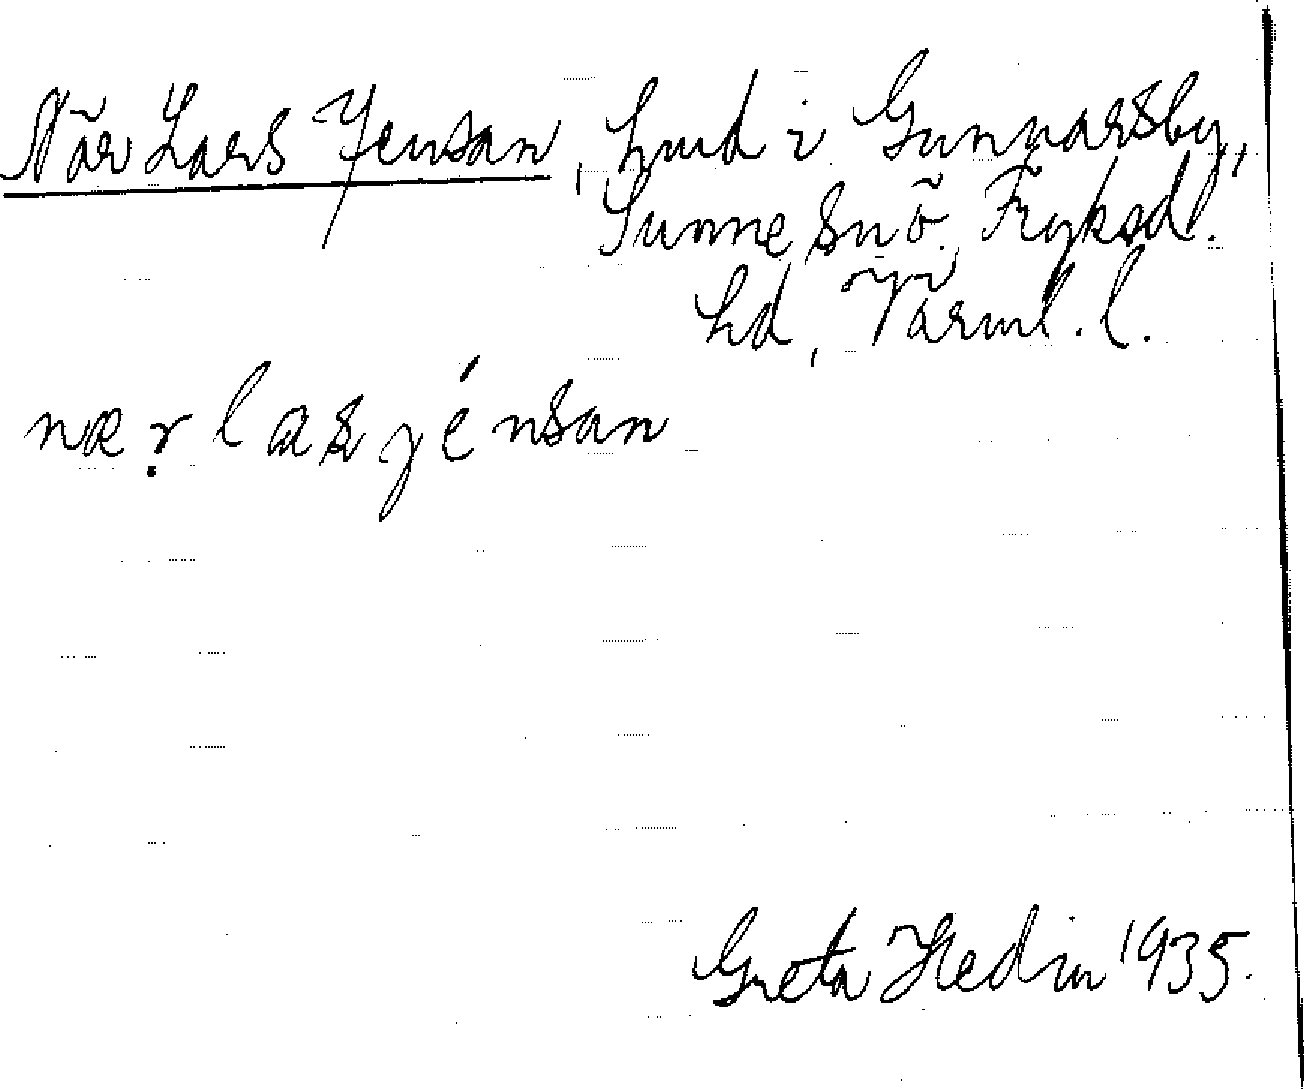 När Lars Jensan, hmd i Gunnarsby,
Sunne snö, Fryksd.
hd, Värml. l.
nær las jénsan
Greta Hedin 1935.